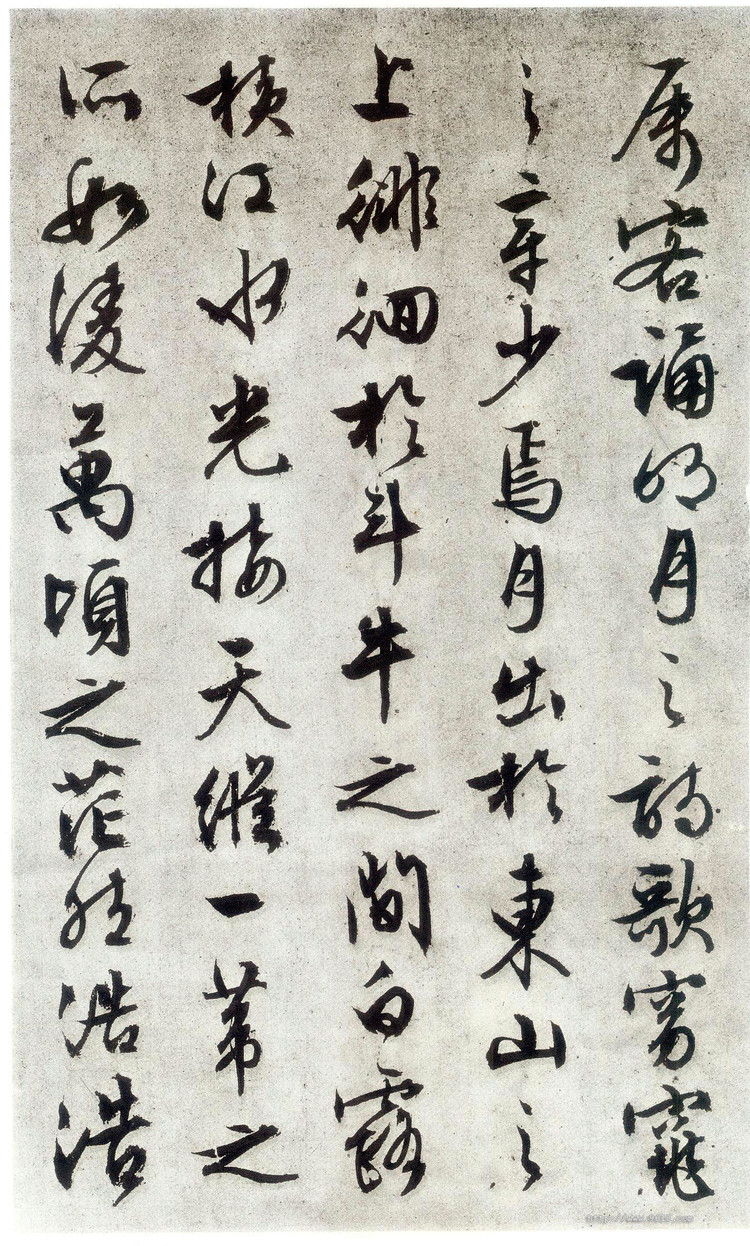 属客誦明月之詩歌窈窕
之章少焉月出於東山之
上徘徊於斗牛之間白露
横江水光接天縱一葦之
所如淩萬頃之茫然浩浩